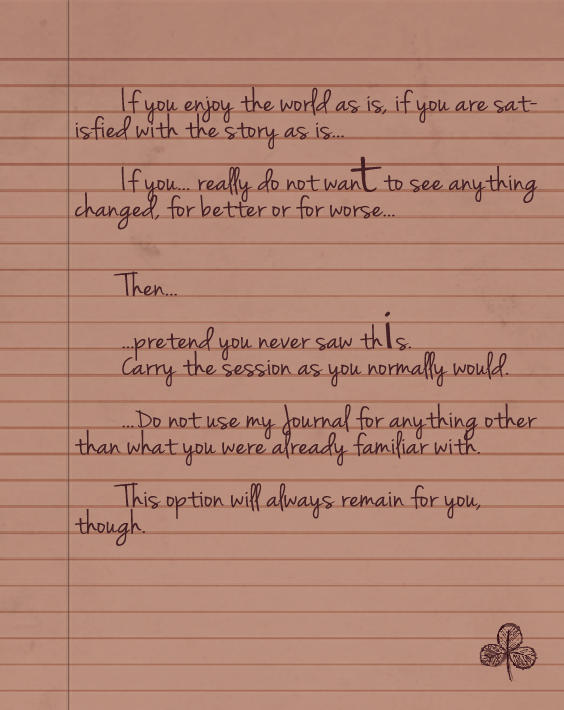 If you enjoy the world as is, if you are sat-
isfied with the story as is...
If you... really do not want to see anything
changed, for better or for worse...
Then...
...pretend you never saw this.
Carry the session as you normally would.
...Do not use my Journal for anything other
than what you were already familiar with.
This option will always remain for you,
though.